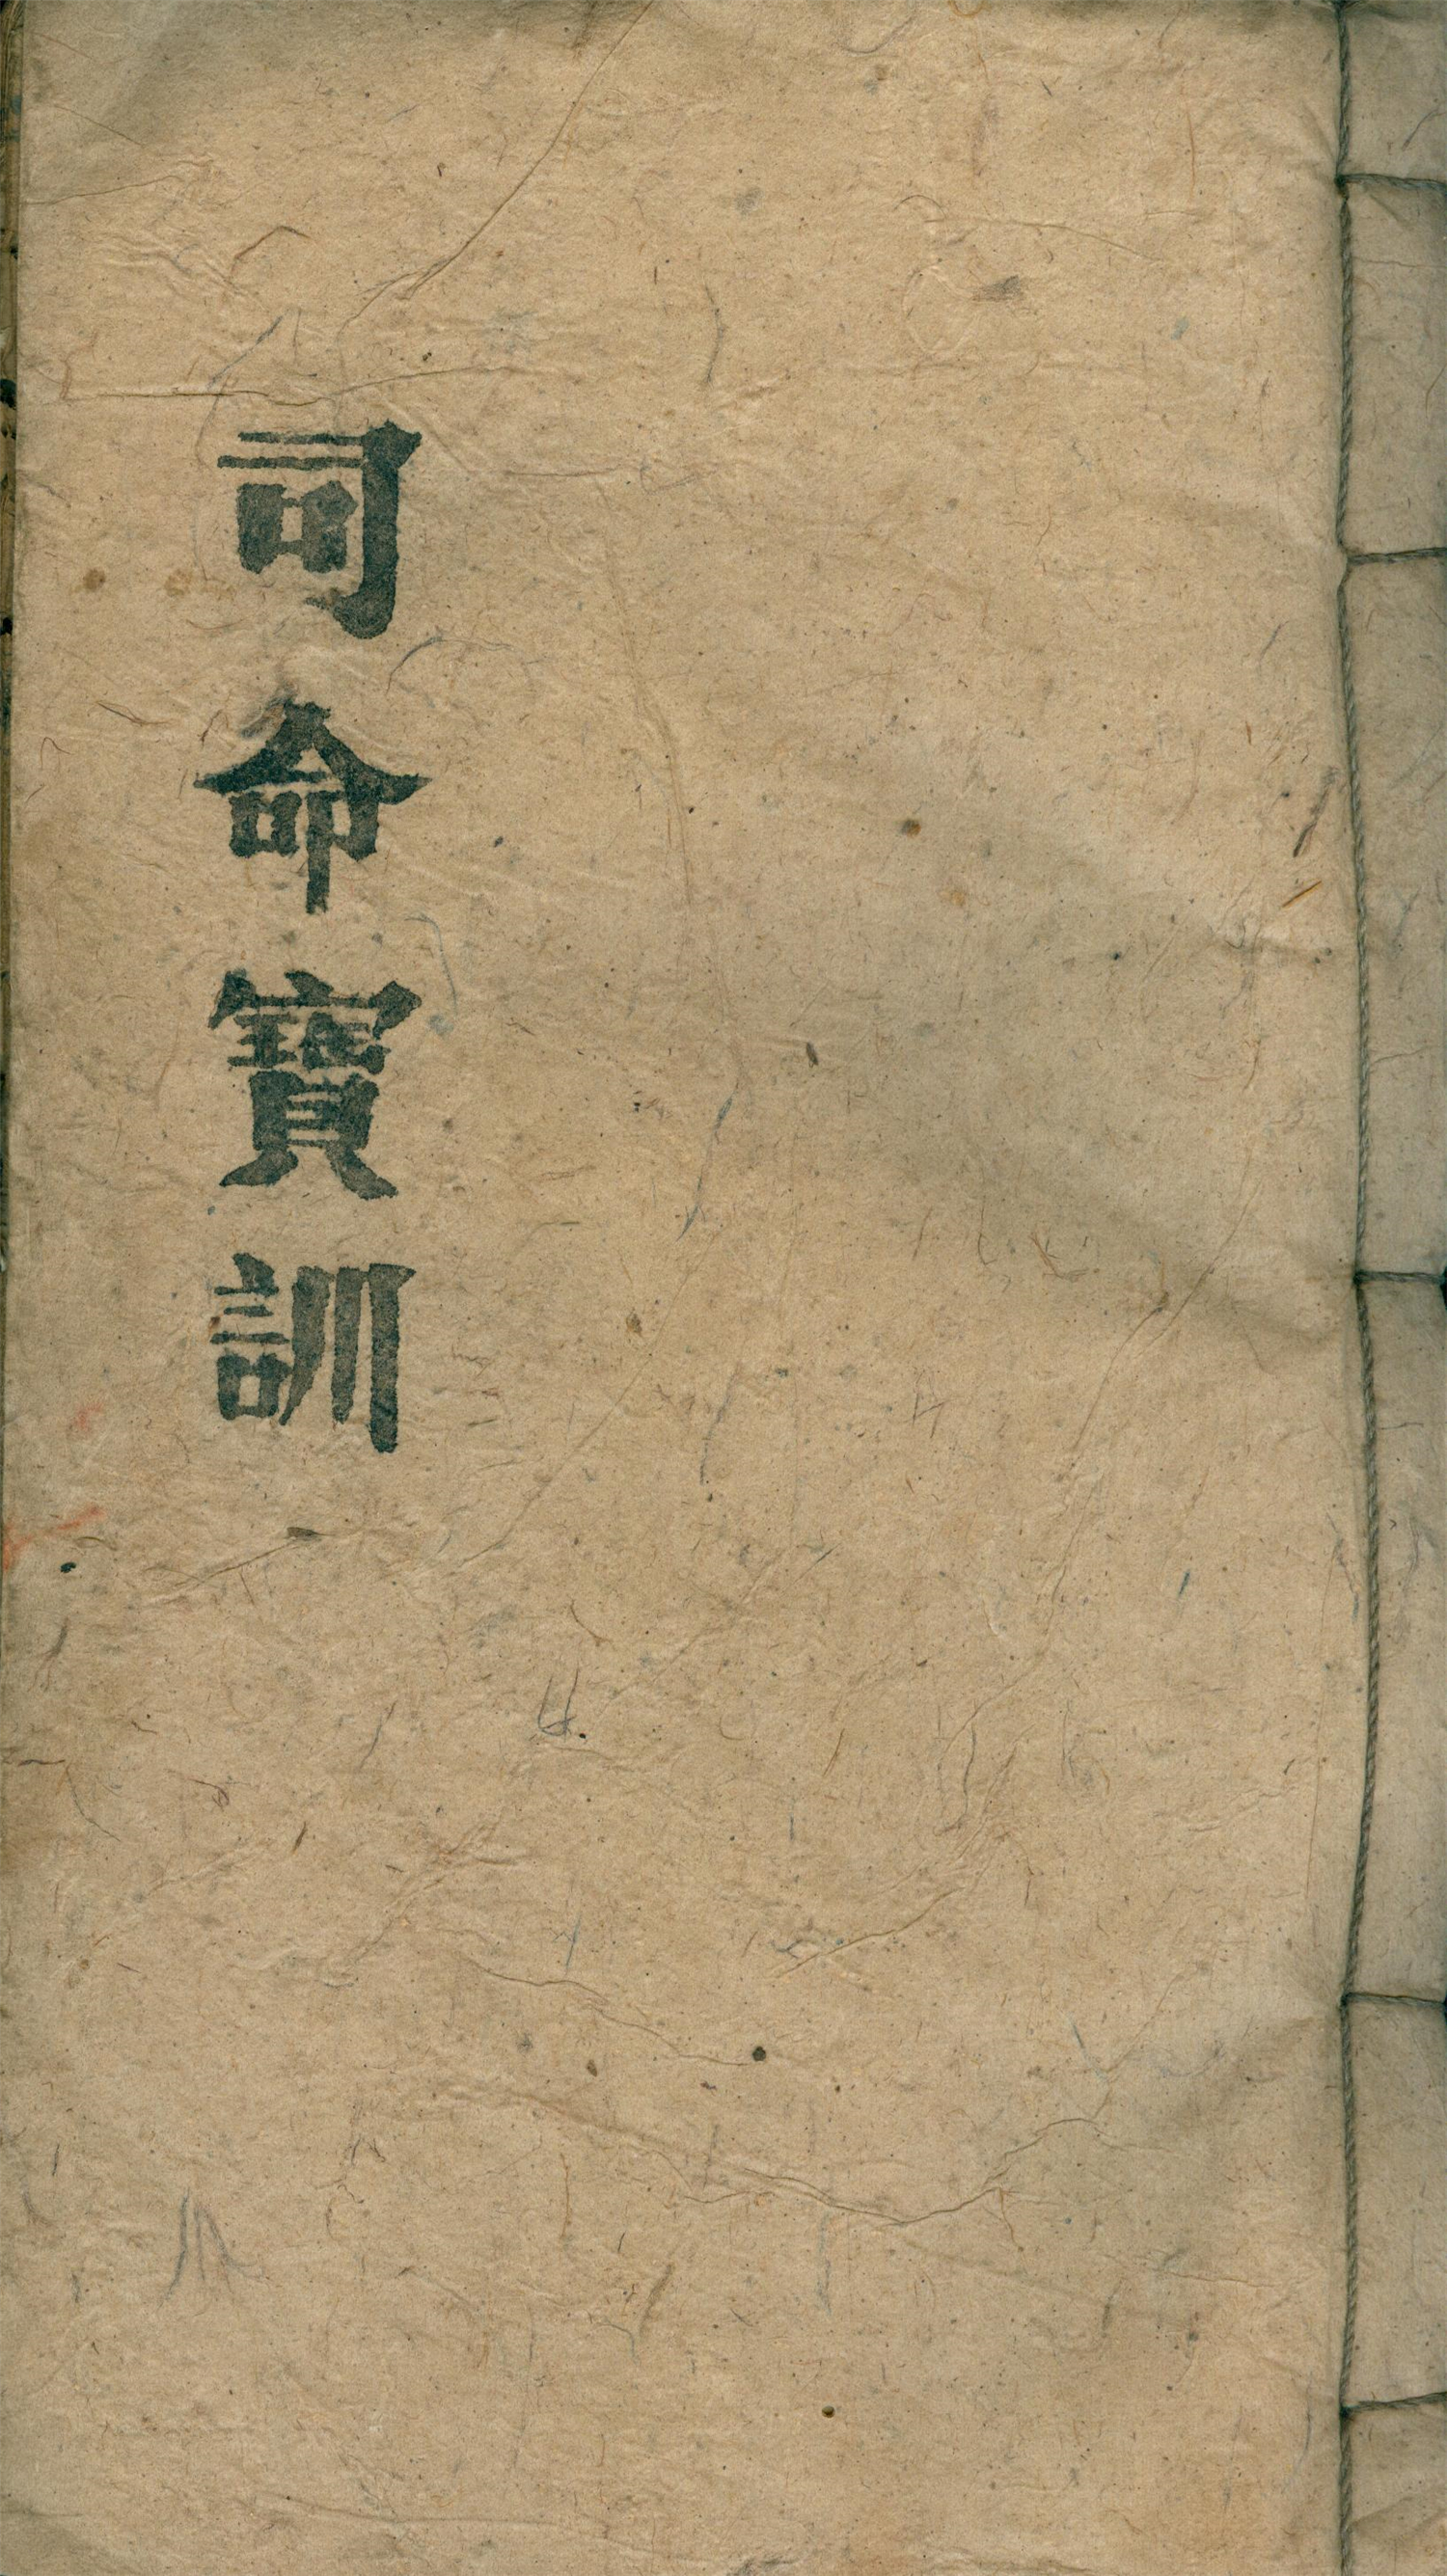 司命寶訓